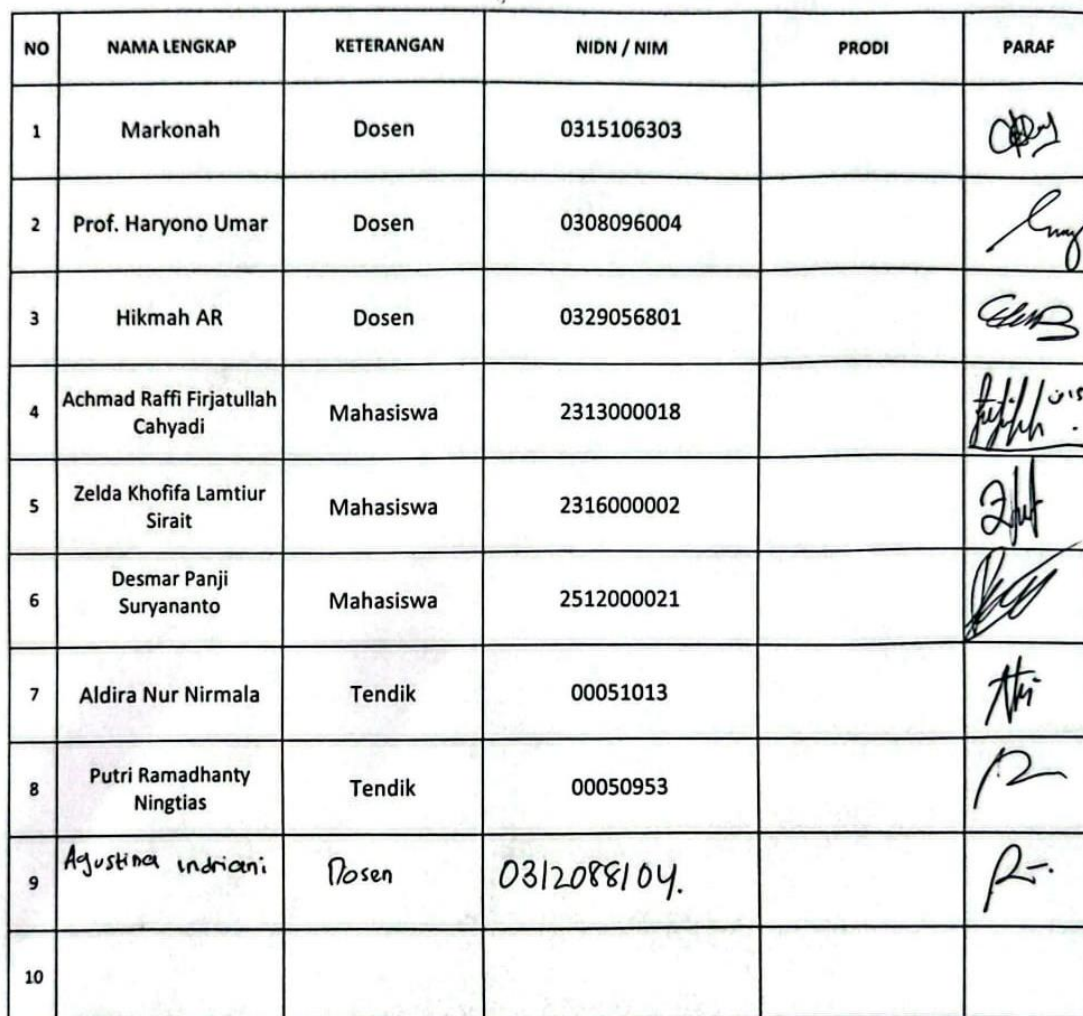 NO NAMA LENGKAP KETERANGAN NIDN / NIM PRODI PARAF
1 Markonah Dosen 0315106303
2 Prof. Haryono Umar Dosen 0308096004
3 Hikmah AR Dosen 0329056801
4 Achmad Raffi Firjatullah Cahyadi Mahasiswa 2313000018
5 Zelda Khofifa Lamtiur Sirait Mahasiswa 2316000002
6 Desmar Panji Suryananto Mahasiswa 2512000021
7 Aldira Nur Nirmala Tendik 00051013
8 Putri Ramadhanty Ningtias Tendik 00050953
9 Agustina indriani Dosen 0312088104.
10